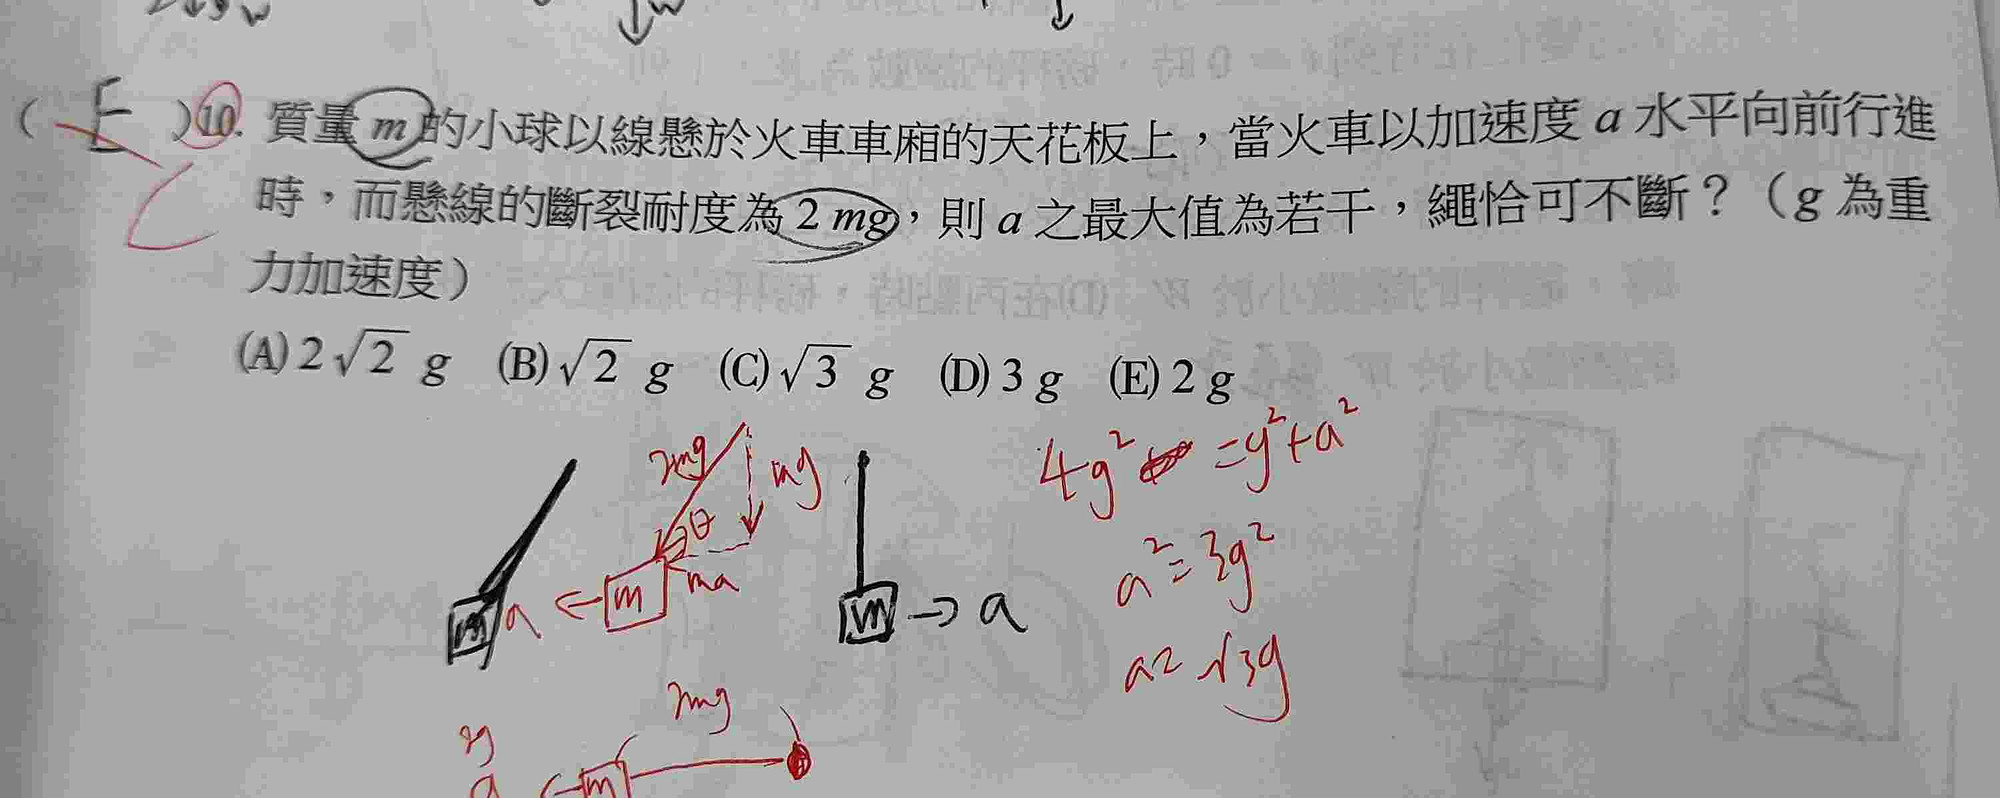 ( E )10. 質量 m 的小球以線懸於火車車廂的天花板上，當火車以加速度 a 水平向前行進
C
時，而懸線的斷裂耐度為 2 mg，則 a 之最大值為若干，繩恰可不斷？（g 為重
力加速度）
(A) 2√2 g (B) √2 g (C) √3 g (D) 3 g (E) 2 g
2mg mg 4g² = g² + a²
θ
m a ← m ma m → a a² = 3g²
a = √3g
2mg
2g
a ← m